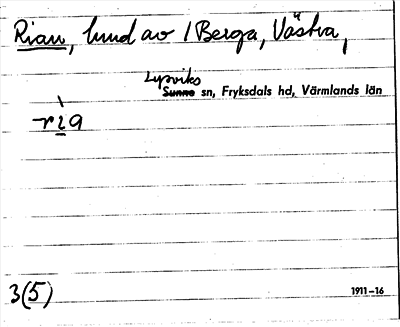 Rian, lund av /Berga, Västra,
Lysviks
Sunne sn, Fryksdals hd, Värmlands län
ri̲a
3(5)
1911–16